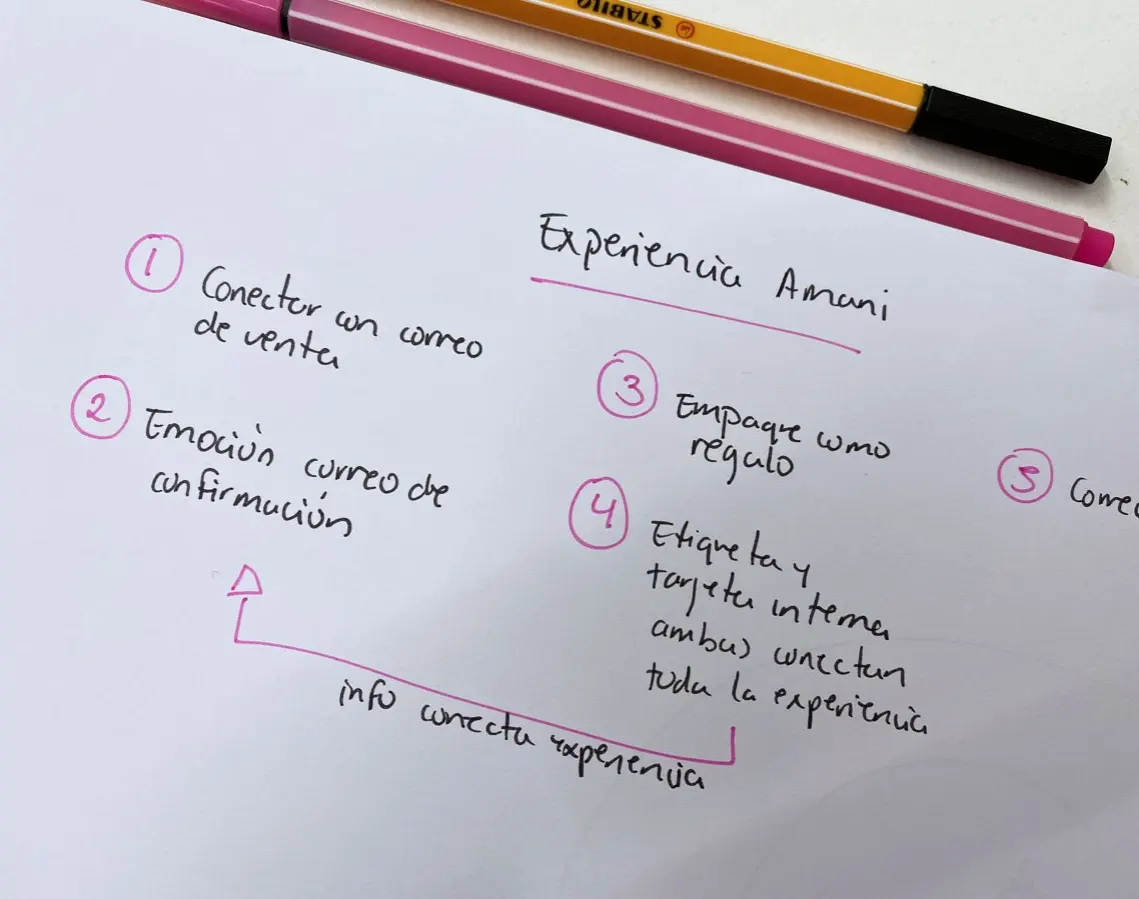 STABILO
Experiencia Amani
1 Conectar con correo
de venta
2 Emoción correo de
confirmación
3 Empaque como
regalo
4 Etiqueta y
tarjeta interna
ambas conectan
toda la experiencia
5
info conecta experiencia